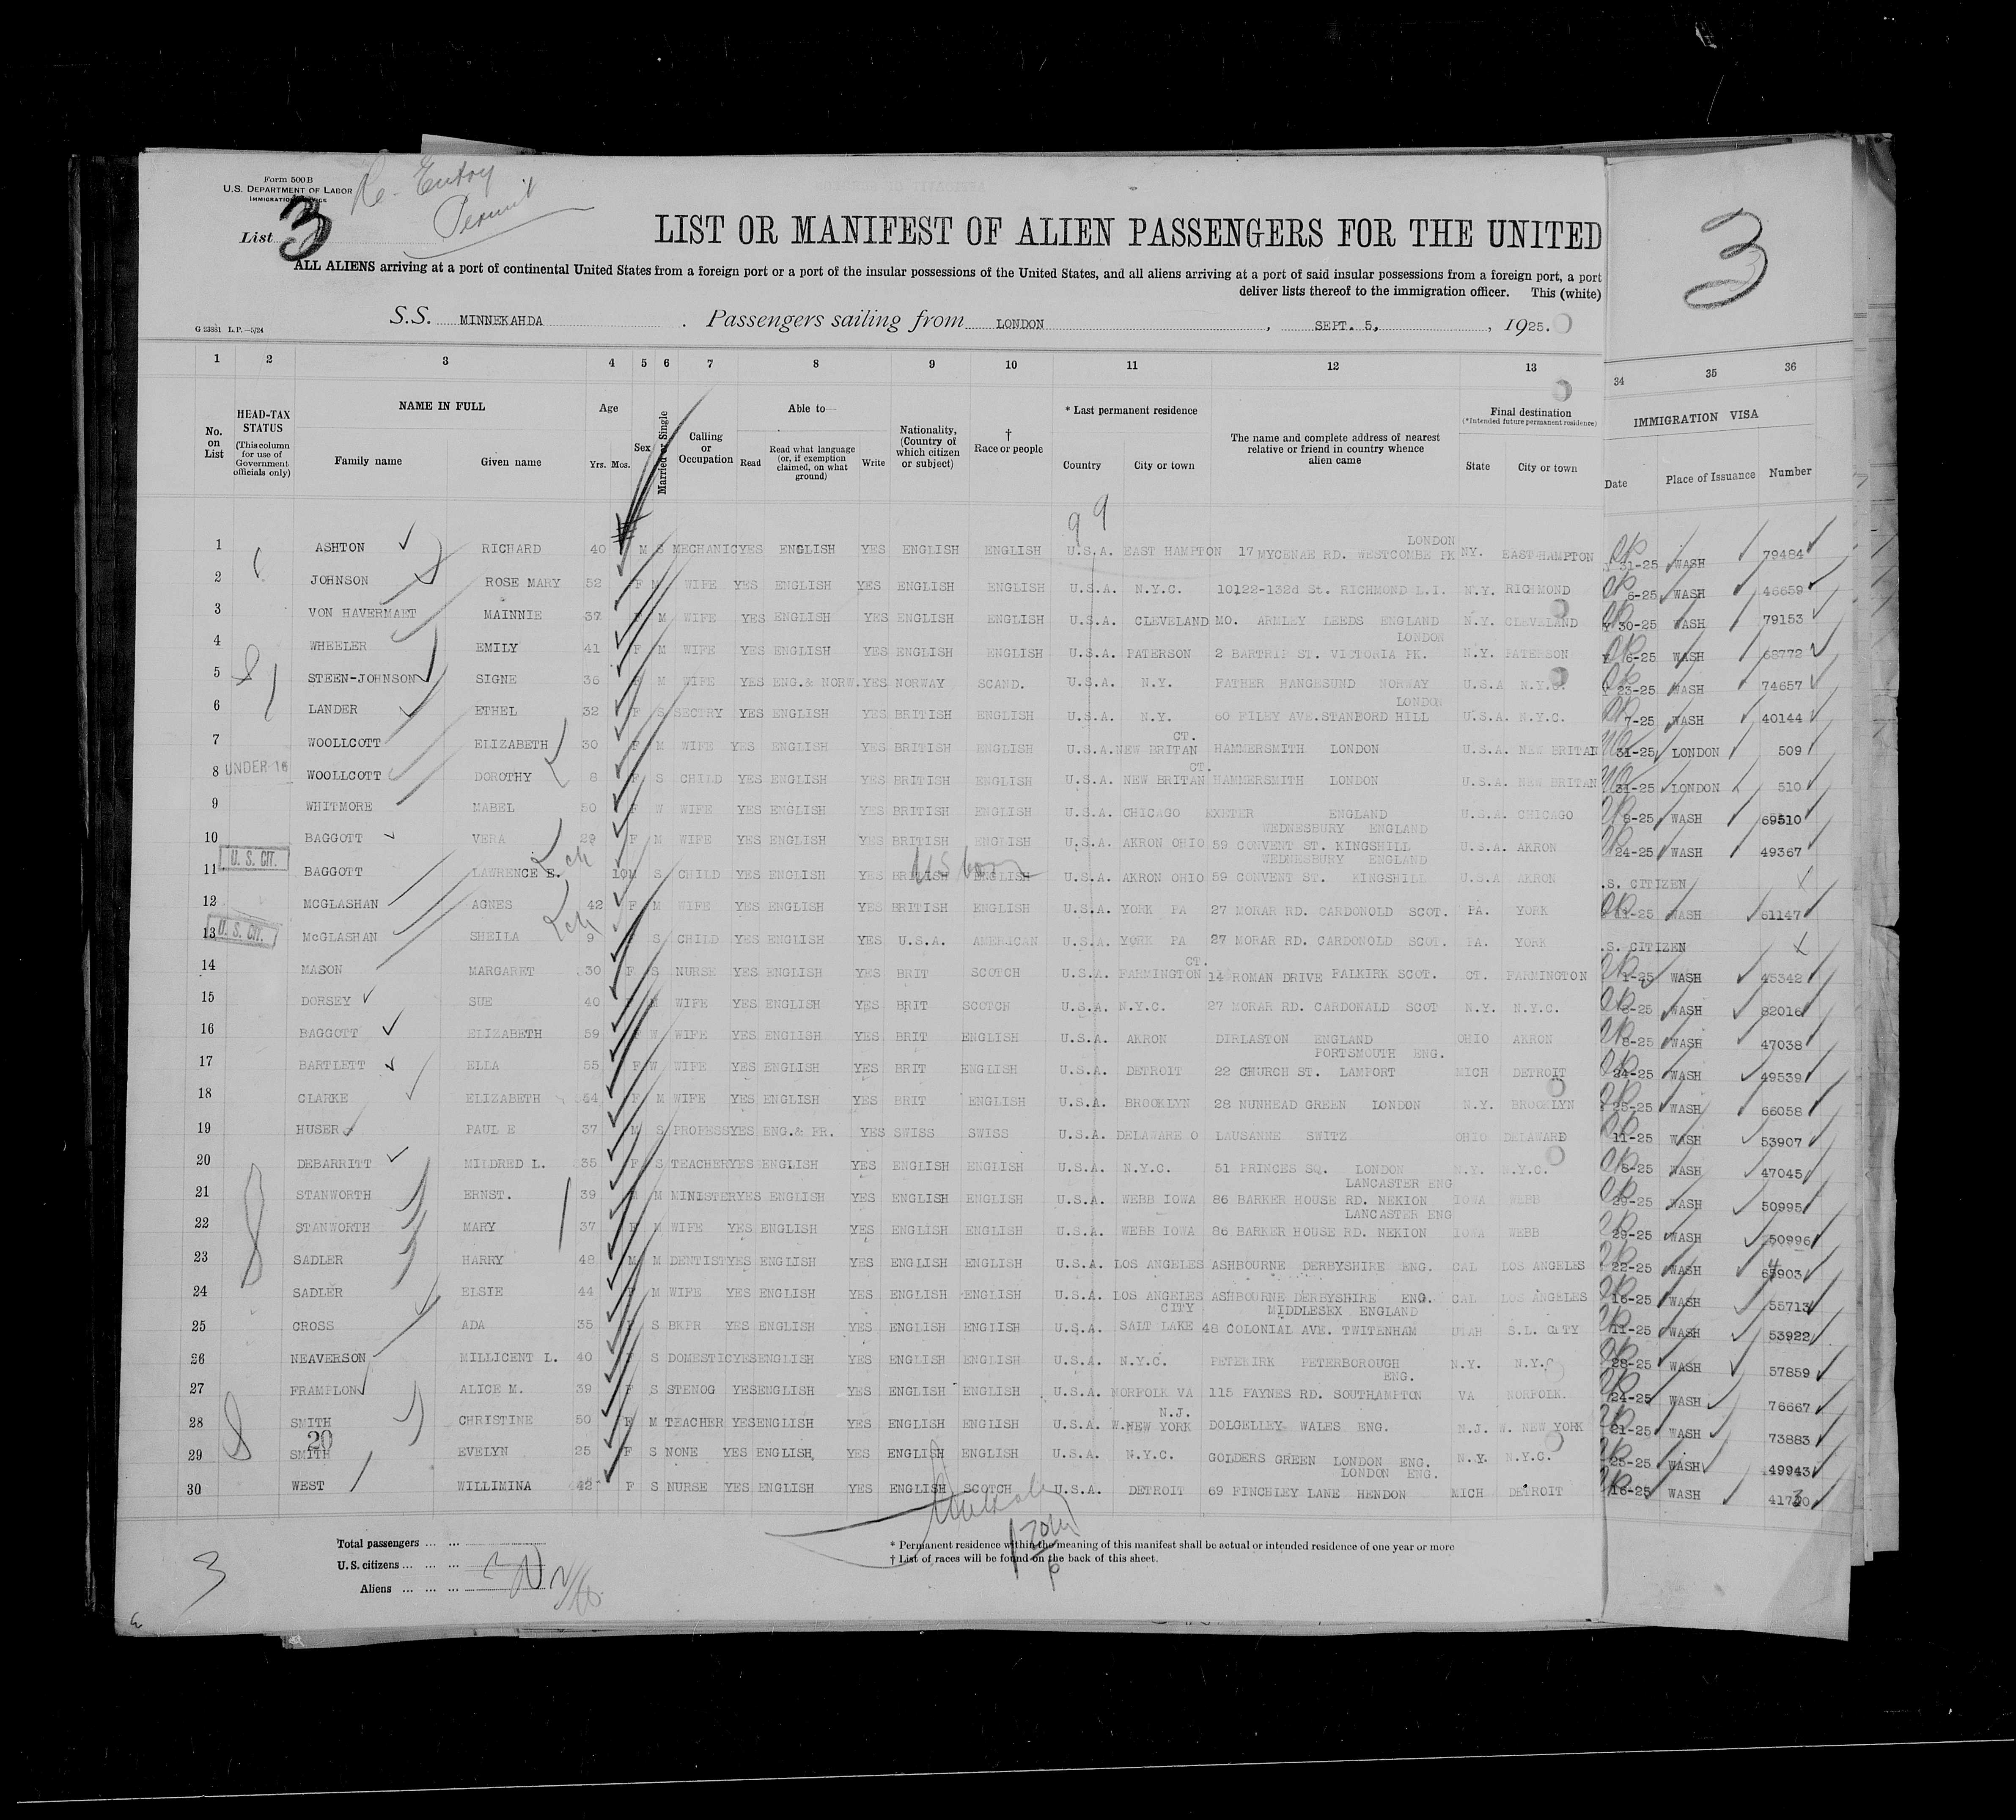 Form 500 B
U.S. DEPARTMENT OF LABOR
IMMIGRATION SERVICE
Re-Entry
Permit
List 3
LIST OR MANIFEST OF ALIEN PASSENGERS FOR THE UNITED
3
ALL ALIENS arriving at a port of continental United States from a foreign port or a port of the insular possessions of the United States, and all aliens arriving at a port of said insular possessions from a foreign port, a port
deliver lists thereof to the immigration officer. This (white)
G 23881 L.P.—5/24
S.S. MINNEKAHDA. Passengers sailing from LONDON, SEPT. 5, 1925.
1 2 3 4 5 6 7 8 9 10 11 12 13 34 35 36
No. on List
HEAD-TAX STATUS (This column for use of Government officials only)
NAME IN FULL
Family name Given name
Age
Yrs. Mos.
Sex
Married or Single
Calling or Occupation
Able to—
Read
Read what language (or, if exemption claimed, on what ground)
Write
Nationality, (Country of which citizen or subject)
† Race or people
* Last permanent residence
Country City or town
The name and complete address of nearest relative or friend in country whence alien came
Final destination
(*Intended future permanent residence)
State City or town
IMMIGRATION VISA
Date Place of Issuance Number
9 9
1 ASHTON RICHARD 40 M S MECHANIC YES ENGLISH YES ENGLISH ENGLISH U.S.A. EAST HAMPTON 17 MYCENAE RD. WESTCOMBE PK LONDON NY. EAST HAMPTON 31-25 WASH 79484
2 JOHNSON ROSE MARY 52 F M WIFE YES ENGLISH YES ENGLISH ENGLISH U.S.A. N.Y.C. 10122-132d St. RICHMOND L.I. N.Y. RICHMOND 6-25 WASH 46659
3 VON HAVERMAET MAINNIE 37 F M WIFE YES ENGLISH YES ENGLISH ENGLISH U.S.A. CLEVELAND MO. ARMLEY LEEDS ENGLAND N.Y. CLEVELAND 30-25 WASH 79153
4 WHEELER EMILY 41 F M WIFE YES ENGLISH YES ENGLISH ENGLISH U.S.A. PATERSON 2 BARTRIP ST. VICTORIA PK. LONDON N.Y. PATERSON 6-25 WASH 68772
5 STEEN-JOHNSON SIGNE 36 F M WIFE YES ENG.& NORW. YES NORWAY SCAND. U.S.A. N.Y. FATHER HANGESUND NORWAY U.S.A N.Y.C. 23-25 WASH 74657
6 LANDER ETHEL 32 F S SECTRY YES ENGLISH YES BRITISH ENGLISH U.S.A. N.Y. 60 FILEY AVE. STANBORD HILL LONDON U.S.A. N.Y.C. 7-25 WASH 40144
7 WOOLLCOTT ELIZABETH 30 F M WIFE YES ENGLISH YES BRITISH ENGLISH U.S.A. NEW BRITAN CT. HAMMERSMITH LONDON U.S.A. NEW BRITAN 31-25 LONDON 509
8 UNDER 16 WOOLLCOTT DOROTHY 8 F S CHILD YES ENGLISH YES BRITISH ENGLISH U.S.A. NEW BRITAN CT. HAMMERSMITH LONDON U.S.A. NEW BRITAN 31-25 LONDON 510
9 WHITMORE MABEL 50 F W WIFE YES ENGLISH YES BRITISH ENGLISH U.S.A. CHICAGO EXETER ENGLAND U.S.A. CHICAGO 8-25 WASH 69510
10 BAGGOTT VERA 29 F M WIFE YES ENGLISH YES BRITISH ENGLISH U.S.A. AKRON OHIO 59 CONVENT ST. KINGSHILL WEDNESBURY ENGLAND U.S.A. AKRON 24-25 WASH 49367
11 U. S. CIT. BAGGOTT LAWRENCE E. 10 M S CHILD YES ENGLISH YES BRITISH US born ENGLISH U.S.A. AKRON OHIO 59 CONVENT ST. KINGSHILL WEDNESBURY ENGLAND U.S.A AKRON .S. CITIZEN
12 MCGLASHAN AGNES 42 F M WIFE YES ENGLISH YES BRITISH ENGLISH U.S.A. YORK PA 27 MORAR RD. CARDONOLD SCOT. PA. YORK 11-25 WASH 61147
13 U. S. CIT. McGLASHAN SHEILA 9 S CHILD YES ENGLISH YES U.S.A. AMERICAN U.S.A. YORK PA 27 MORAR RD. CARDONOLD SCOT. PA. YORK .S. CITIZEN
14 MASON MARGARET 30 F S NURSE YES ENGLISH YES BRIT SCOTCH U.S.A. FARMINGTON CT. 14 ROMAN DRIVE FALKIRK SCOT. CT. FARMINGTON 1-25 WASH 45342
15 DORSEY SUE 40 F M WIFE YES ENGLISH YES BRIT SCOTCH U.S.A. N.Y.C. 27 MORAR RD. CARDONALD SCOT N.Y. N.Y.C. 8-25 WASH 82016
16 BAGGOTT ELIZABETH 59 F W WIFE YES ENGLISH YES BRIT ENGLISH U.S.A. AKRON DIRLASTON ENGLAND OHIO AKRON 8-25 WASH 47038
17 BARTLETT ELLA 55 F W WIFE YES ENGLISH YES BRIT ENGLISH U.S.A. DETROIT 22 CHURCH ST. LAMPORT PORTSMOUTH ENG. MICH DETROIT 24-25 WASH 49539
18 CLARKE ELIZABETH 54 F M WIFE YES ENGLISH YES BRIT ENGLISH U.S.A. BROOKLYN 28 NUNHEAD GREEN LONDON N.Y. BROOKLYN 25-25 WASH 66058
19 HUSER PAUL E 37 M S PROFESS YES ENG.& FR. YES SWISS SWISS U.S.A. DELAWARE O LAUSANNE SWITZ OHIO DELAWARE 11-25 WASH 53907
20 DEBARRITT MILDRED L. 35 F S TEACHER YES ENGLISH YES ENGLISH ENGLISH U.S.A. N.Y.C. 51 PRINCES SQ. LONDON N.Y. N.Y.C. 8-25 WASH 47045
21 STANWORTH ERNST. 39 M M MINISTER YES ENGLISH YES ENGLISH ENGLISH U.S.A. WEBB IOWA 86 BARKER HOUSE RD. NEKION LANCASTER ENG IOWA WEBB 29-25 WASH 50995
22 STANWORTH MARY 37 F M WIFE YES ENGLISH YES ENGLISH ENGLISH U.S.A. WEBB IOWA 86 BARKER HOUSE RD. NEKION LANCASTER ENG IOWA WEBB 29-25 WASH 50996
23 SADLER HARRY 48 M M DENTIST YES ENGLISH YES ENGLISH ENGLISH U.S.A. LOS ANGELES ASHBOURNE DERBYSHIRE ENG. CAL LOS ANGELES 22-25 WASH
24 SADLER ELSIE 44 F M WIFE YES ENGLISH YES ENGLISH ENGLISH U.S.A. LOS ANGELES ASHBOURNE DERBYSHIRE ENG. CAL LOS ANGELES 16-25 WASH 55713
25 CROSS ADA 35 F S BKPR YES ENGLISH YES ENGLISH ENGLISH U.S.A. SALT LAKE CITY 48 COLONIAL AVE. TWITENHAM MIDDLESEX ENGLAND UTAH S.L. CITY 11-25 WASH 53922
26 NEAVERSON MILLICENT L. 40 F S DOMESTIC YES ENGLISH YES ENGLISH ENGLISH U.S.A. N.Y.C. PETEKIRK PETERBOROUGH N.Y. N.Y.C 28-25 WASH 57859
27 FRAMPLON ALICE M. 39 F S STENOG YES ENGLISH YES ENGLISH ENGLISH U.S.A. NORFOLK VA 115 PAYNES RD. SOUTHAMPTON ENG. VA NORFOLK. 24-25 WASH 76667
28 SMITH CHRISTINE 50 F M TEACHER YES ENGLISH YES ENGLISH ENGLISH U.S.A. W. NEW YORK N.J. DOLGELLEY WALES ENG. N.J. W. NEW YORK 21-25 WASH 73883
20
29 SMITH EVELYN 25 F S NONE YES ENGLISH, YES ENGLISH ENGLISH U.S.A. N.Y.C. GOLDERS GREEN LONDON ENG. N.Y. N.Y.C. 25-25 WASH 49943
30 WEST WILLIMINA 42 F S NURSE YES ENGLISH YES ENGLISH SCOTCH U.S.A. DETROIT 69 FINCHLEY LANE HENDON LONDON ENG. MICH DETROIT 16-25 WASH
Total passengers
U.S. citizens
Aliens
3
* Permanent residence within the meaning of this manifest shall be actual or intended residence of one year or more
† List of races will be found on the back of this sheet.